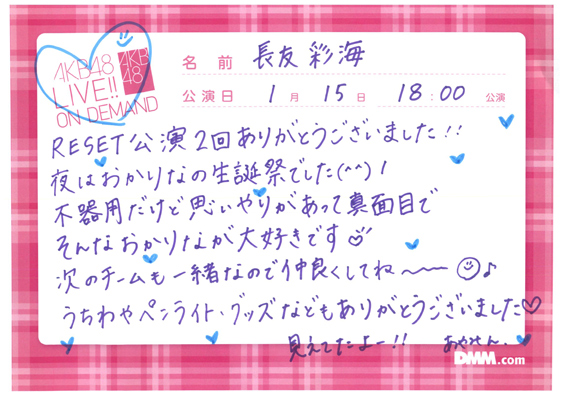 AKB48
LIVE!!
ON DEMAND
AKB
48
名前 長友彩海
公演日 1月15日 18:00公演
RESET公演2回ありがとうございました!!
夜はおかりなの生誕祭でした(^^)!
不器用だけど思いやりがあって真面目で
そんなおかりなが大好きです♡
次のチームも一緒なので仲良くしてね〜〜♪
うちわやペンライト・グッズなどもありがとうございました♡
見えてたよー!! あやせん。
DMM.com